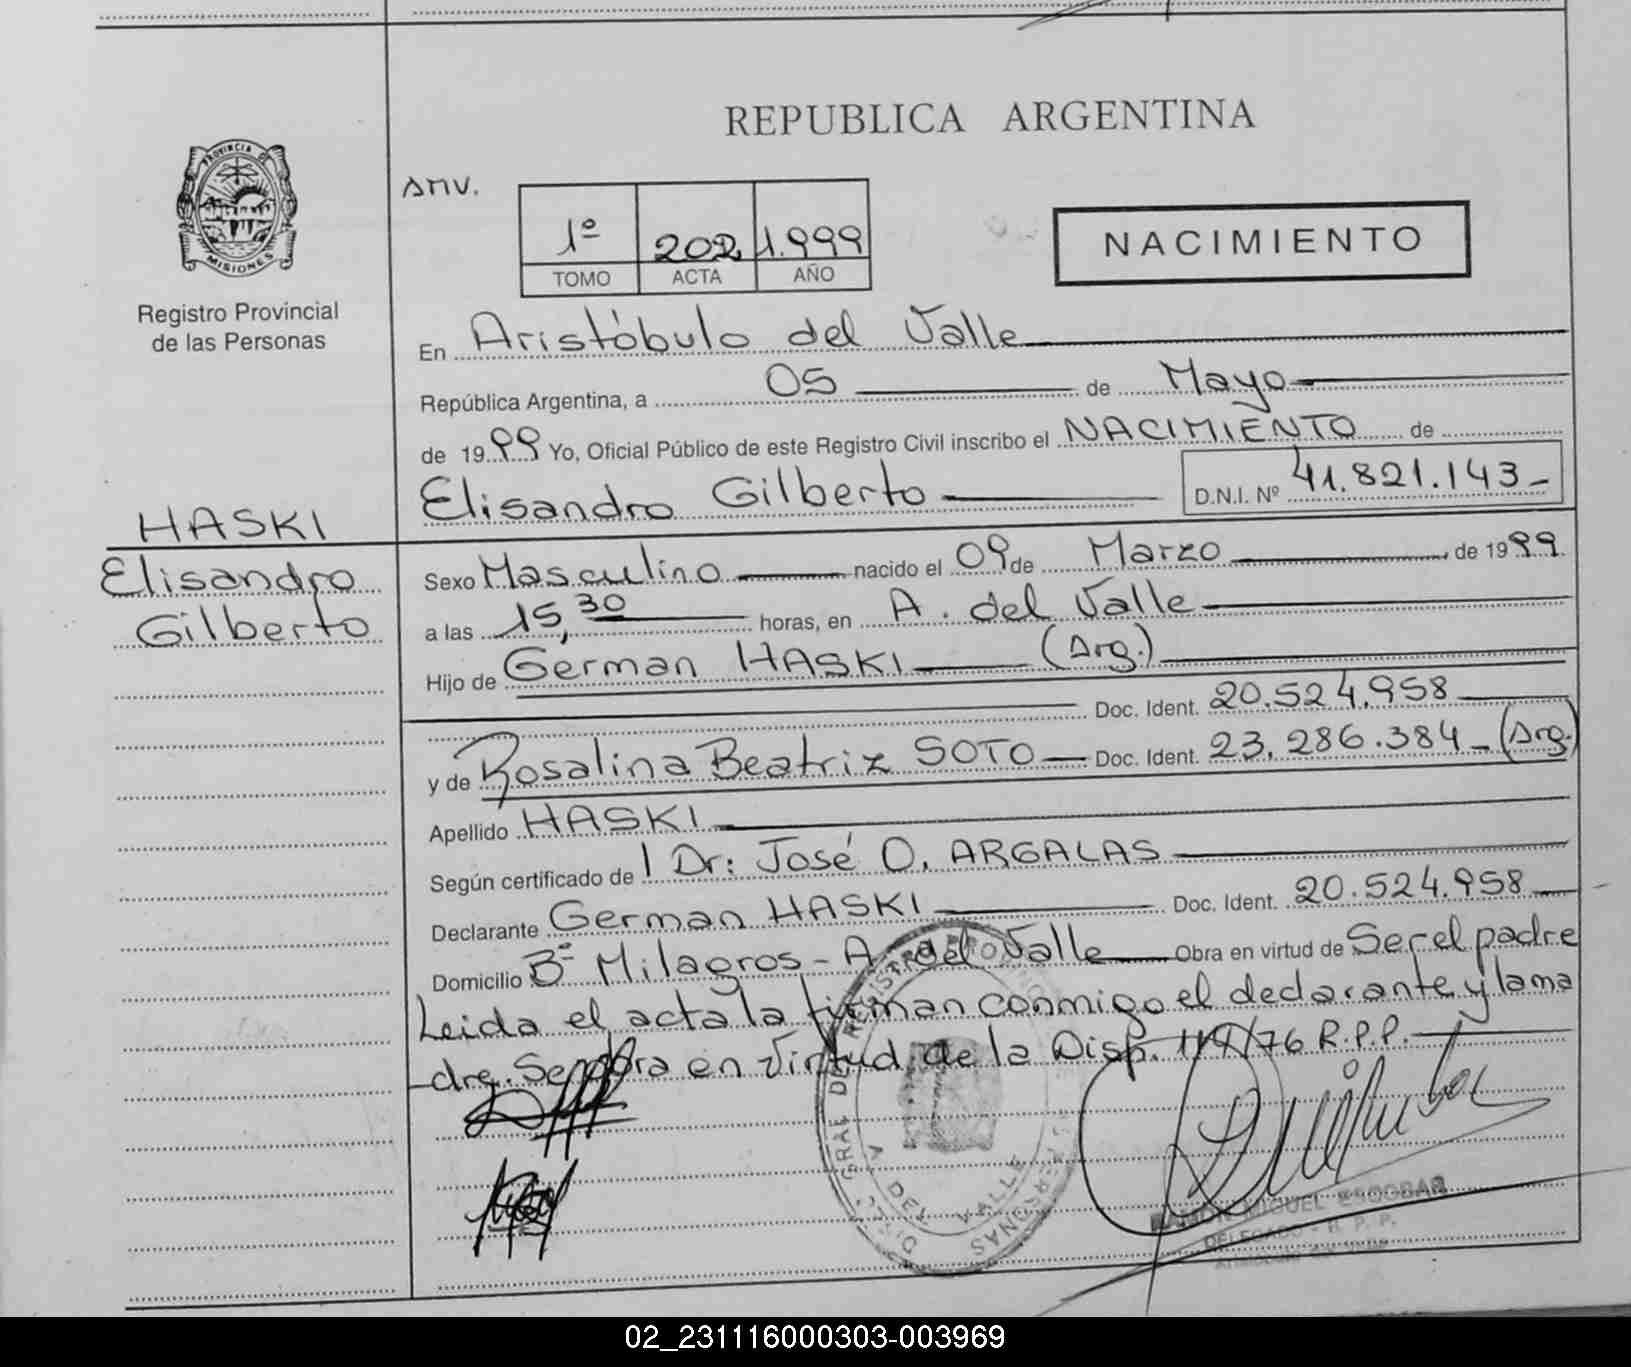 REPUBLICA ARGENTINA
PROVINCIA DE
MISIONES
Registro Provincial
de las Personas
AMV.
1º 202 1.999
TOMO ACTA AÑO
NACIMIENTO
En Aristóbulo del Valle
República Argentina, a 05 de Mayo
de 1999 Yo, Oficial Público de este Registro Civil inscribo el NACIMIENTO de
Elisandro Gilberto D.N.I. Nº 41.821.143-
HASKI
Elisandro
Gilberto
Sexo Masculino nacido el 09 de Marzo de 1999
a las 15,30 horas, en A. del Valle
Hijo de German HASKI (Arg.)
Doc. Ident. 20.524.958
y de Rosalina Beatriz SOTO Doc. Ident. 23.286.384- (Arg.)
Apellido HASKI
Según certificado de / Dr: José O. ARGALAS
Declarante German HASKI Doc. Ident. 20.524.958
Domicilio Bº Milagros - A. del Valle Obra en virtud de Ser el padre
Leida el acta la firman conmigo el declarante y la ma
dre. Se obra en virtud de la Disp. 119/76 R.P.P.
RAMON MIGUEL ESCOBAR
DELEGADO - R. P. P.
02_231116000303-003969